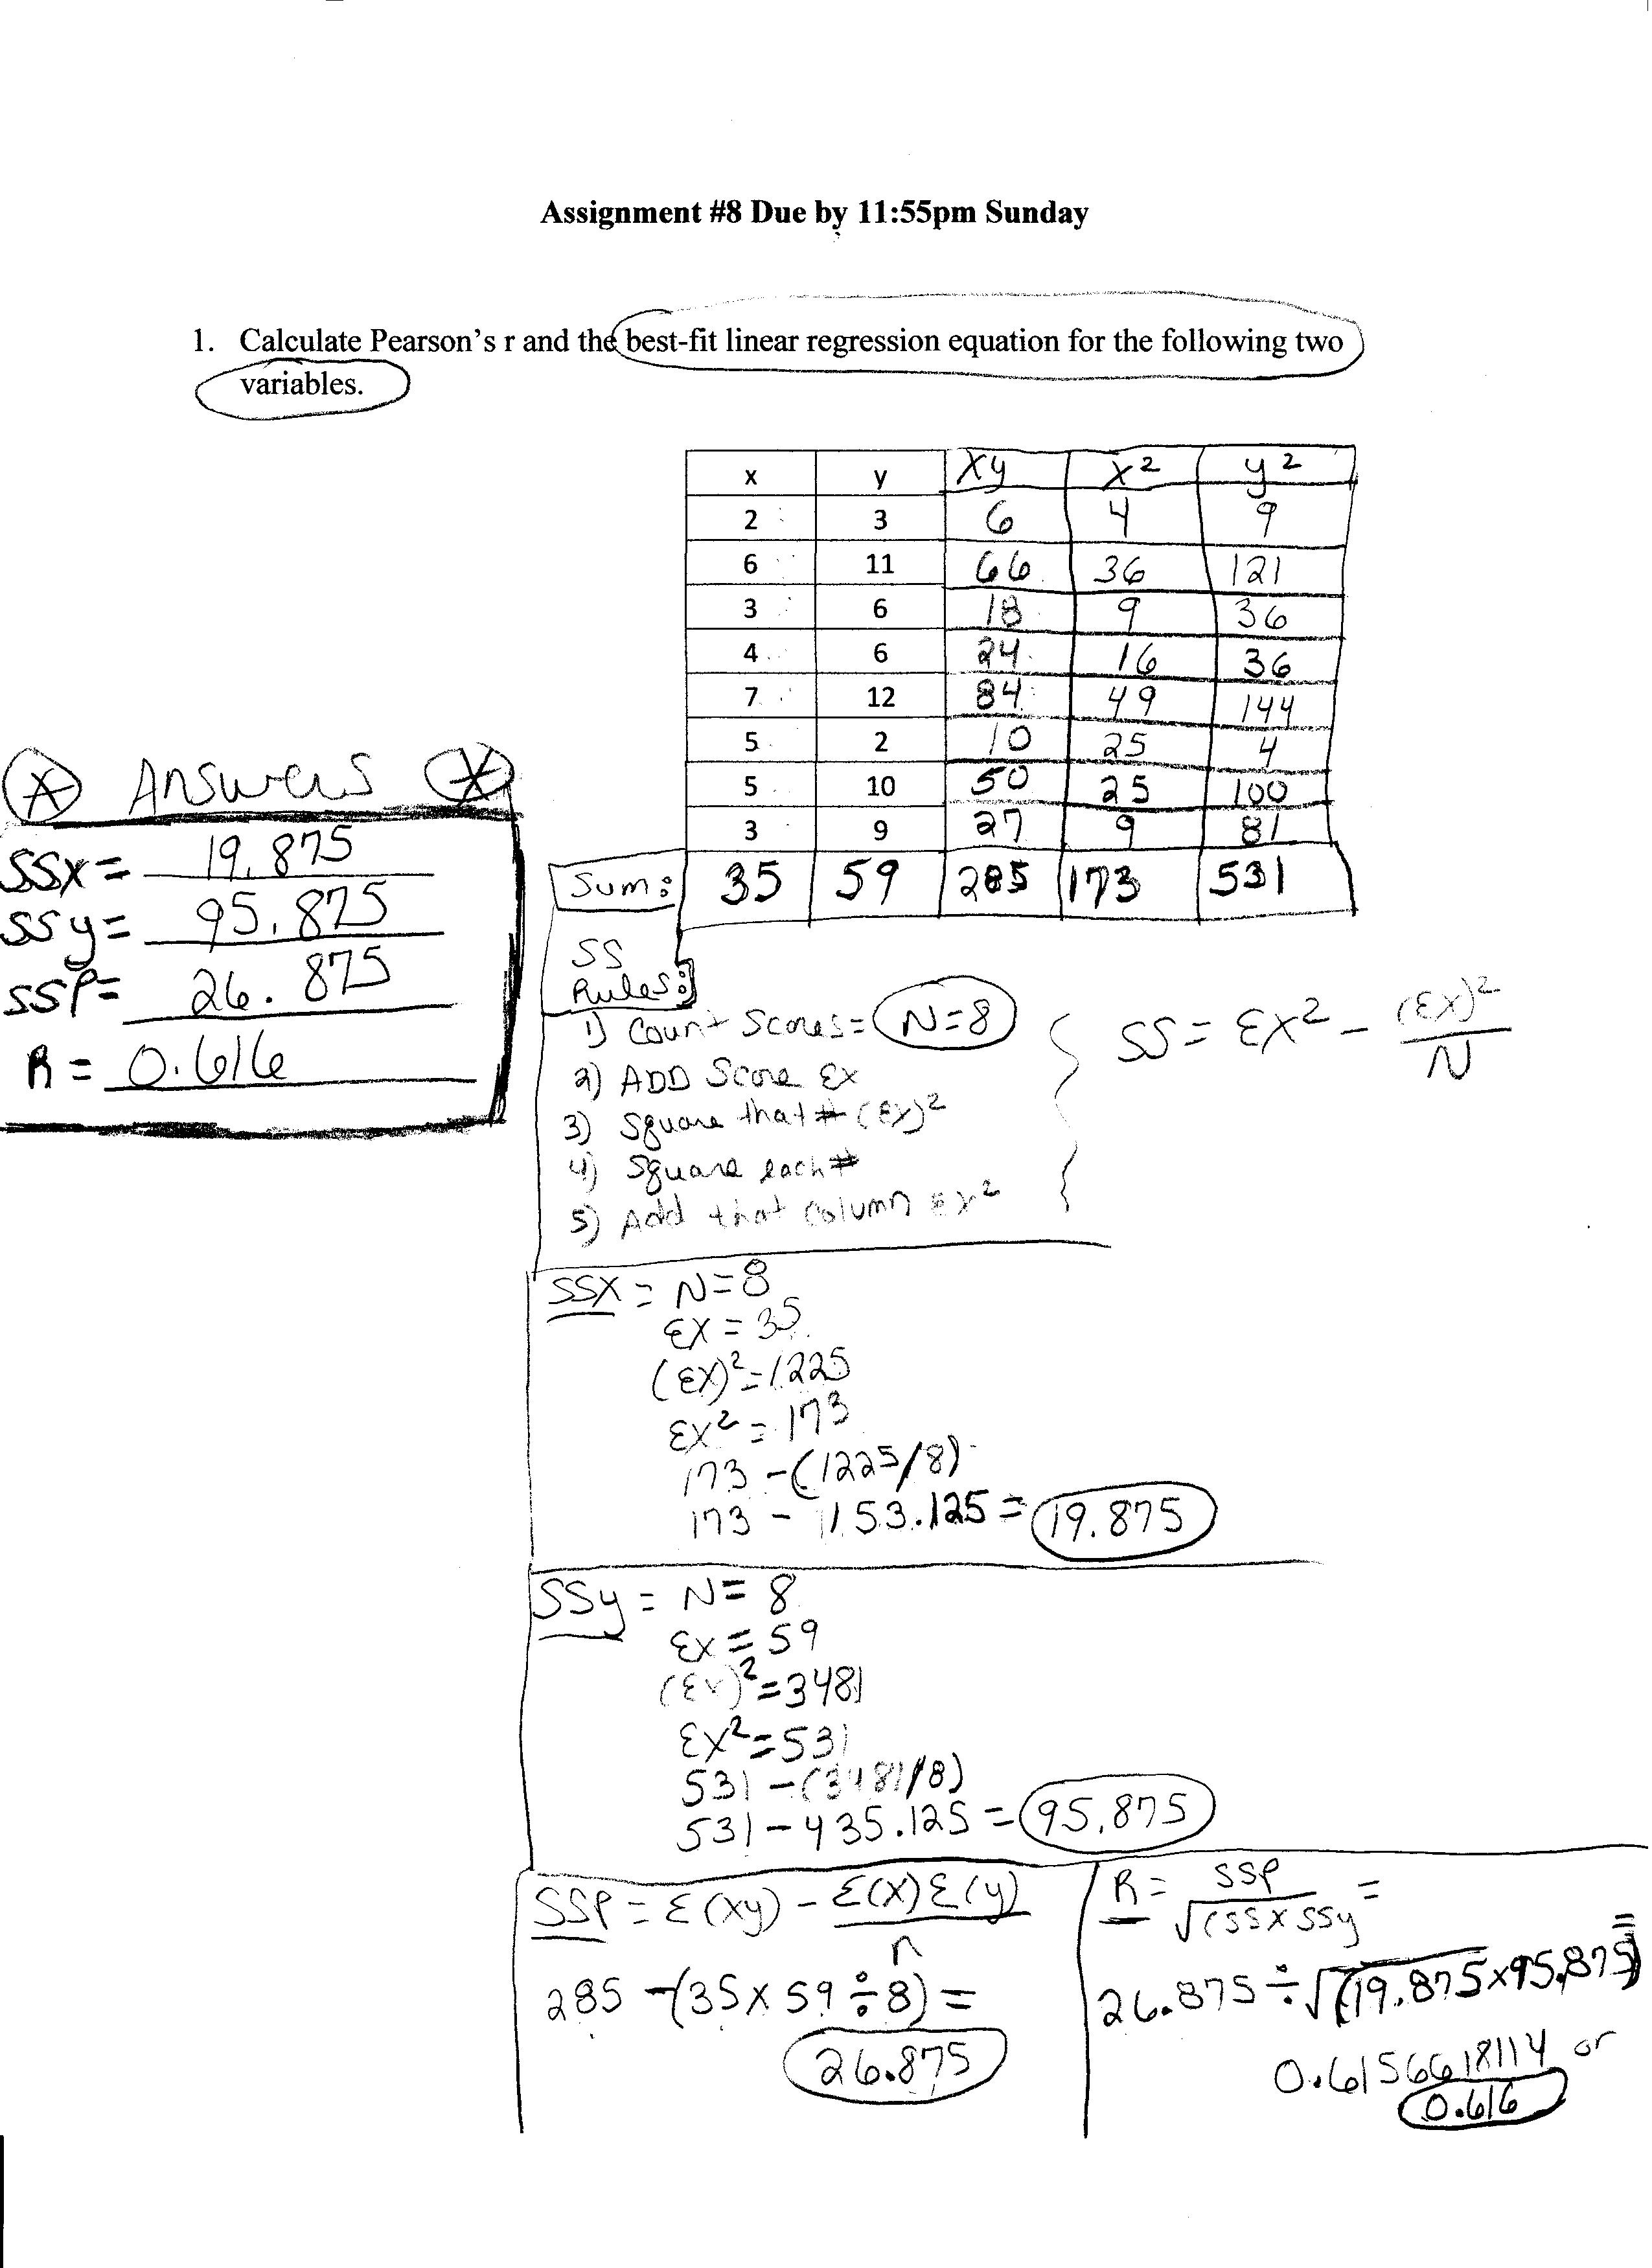 Assignment #8 Due by 11:55pm Sunday
1. Calculate Pearson's r and the best-fit linear regression equation for the following two
variables.
x y xy x² y²
2 3 6 4 9
6 11 66 36 121
3 6 18 9 36
4 6 24 16 36
7 12 84 49 144
5 2 10 25 4
5 10 50 25 100
3 9 27 9 81
Sum: 35 59 285 173 531
Answers
SSX = 19.875
SSy = 95.875
SSP = 26.875
R = 0.616
SS
Rules:
1) Count Scores = N=8
2) ADD Score Ɛx
3) Square that # (Ɛx)²
4) Square each #
5) Add that column Ɛx²
SS = ƐX² - (ƐX)²
N
SSX = N=8
ƐX = 35
(ƐX)² = 1225
ƐX² = 173
173 - (1225/8)
173 - 153.125 = 19.875
SSy = N= 8
Ɛx = 59
(Ɛx)² = 3481
ƐX² = 531
531 - (3481/8)
531 - 435.125 = 95.875
SSP = Ɛ(xy) - Ɛ(x)Ɛ(y)
n
285 - (35 x 59 ÷ 8) =
26.875
R = SSP =
√(SSX SSy
26.875 ÷ √(19.875 x 95.875) =
0.6156618114 or
0.616